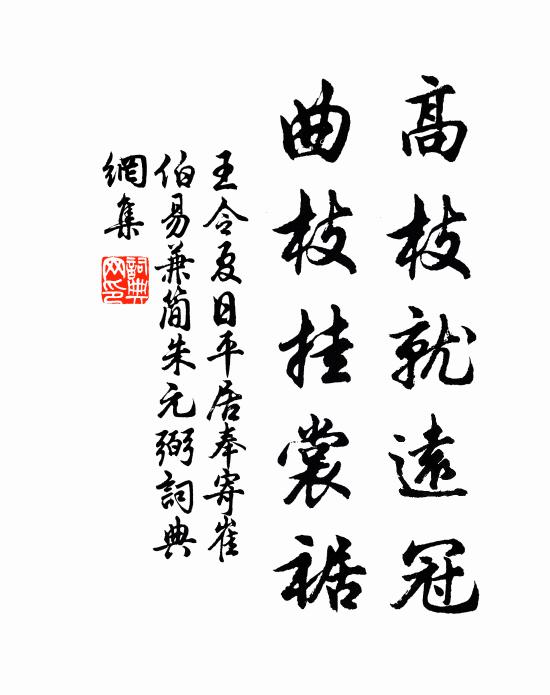 高枝就遠冠
曲枝挂裳裾
王令夏日平居奉寄崔
伯易兼簡朱元弼詞典
網集
詞典網印